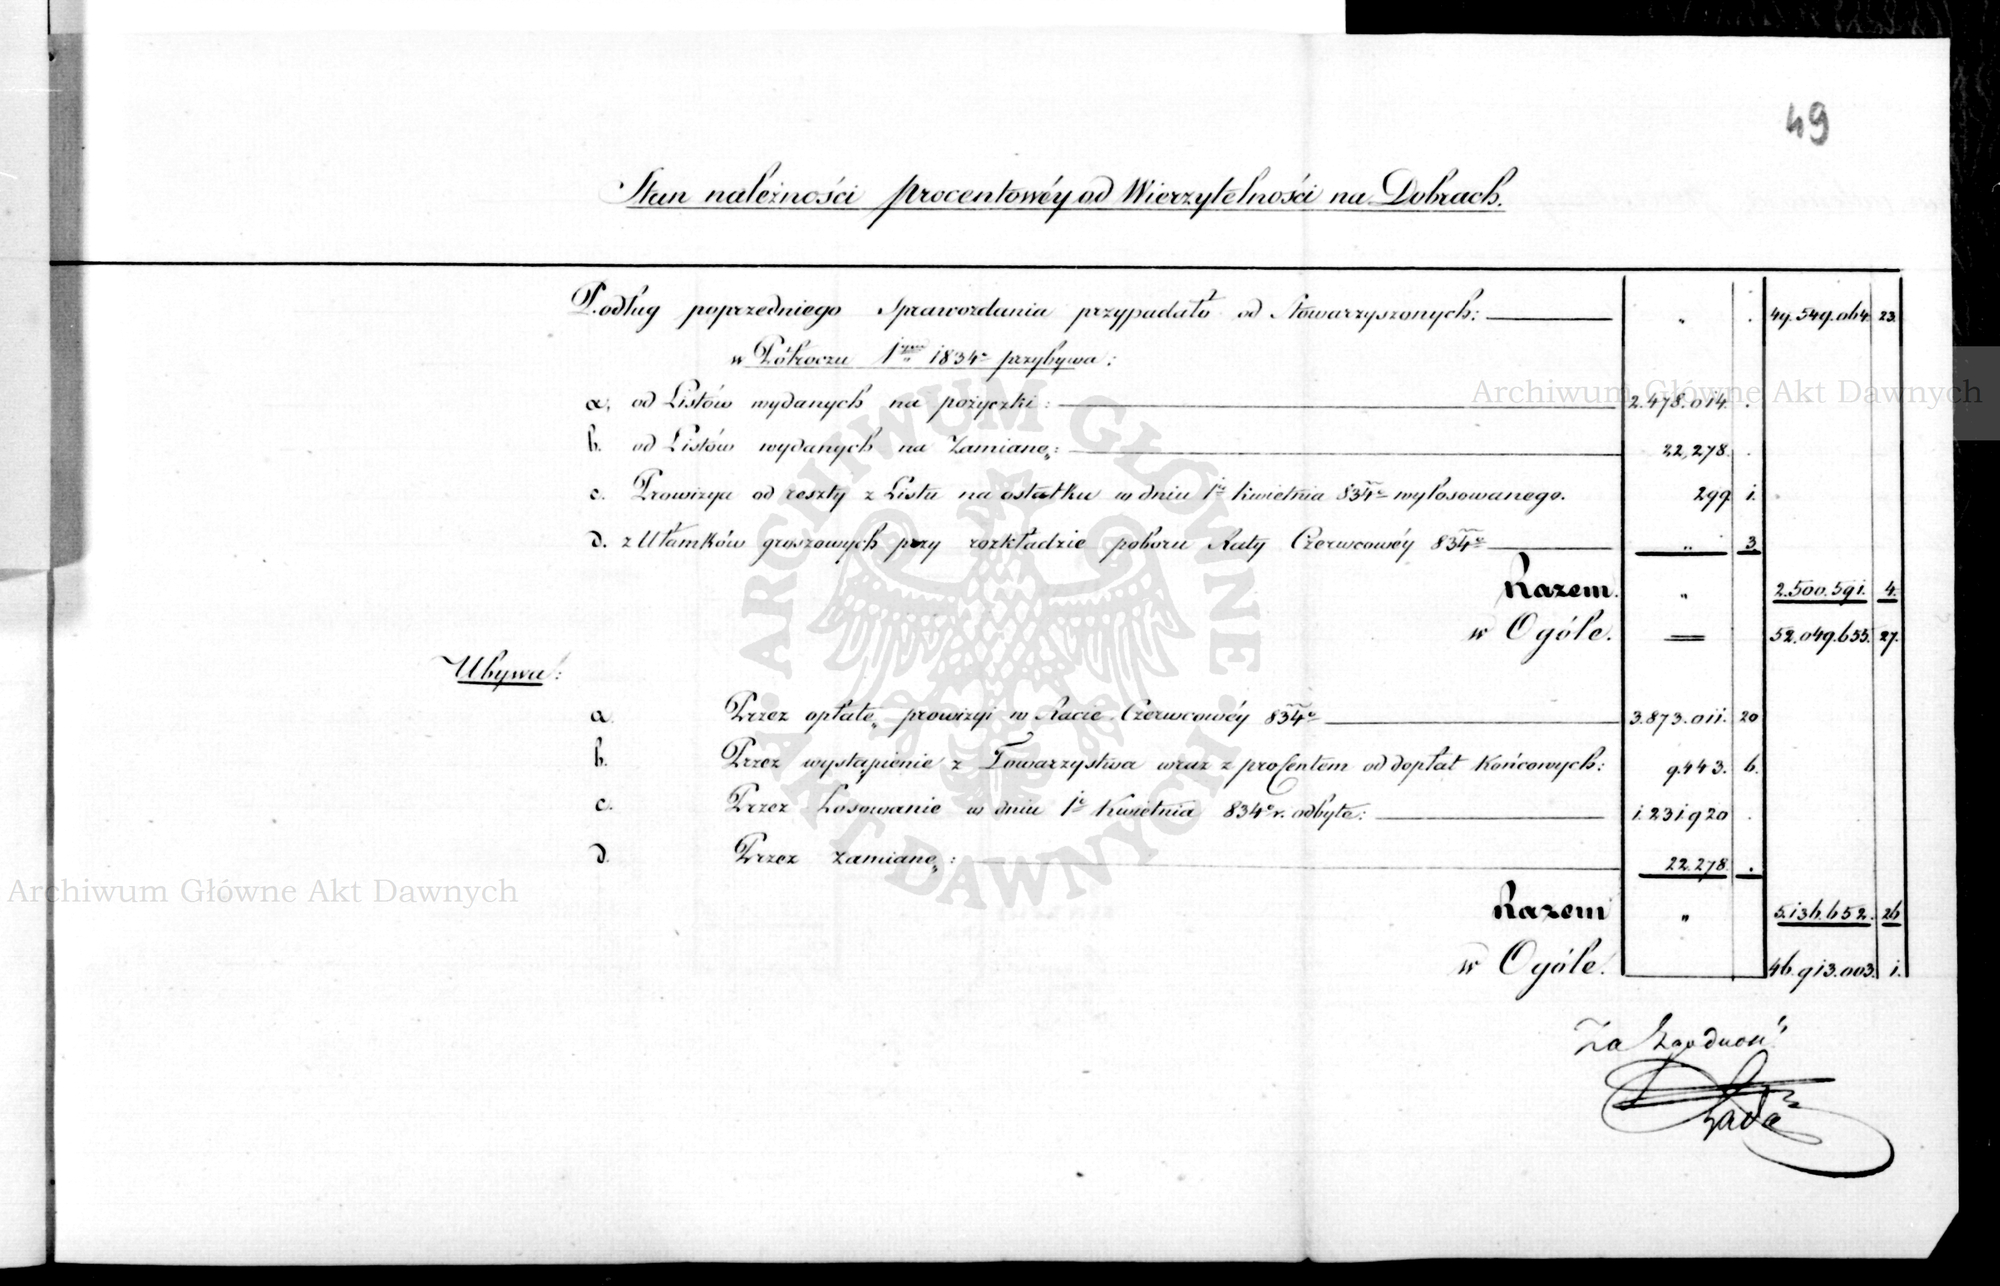 49
Stan należności procentowéy od Wierzytelności na Dobrach.
Podług poprzedniego Sprawozdania przypadało od Stowarzyszonych: „ . 49.549.064. 23.
w Półroczu 1ym 1834o przybywa:
a, od Listów wydanych na pożyczki: 2.478.014. .
b. od Listów wydanych na Zamianę: 22,278. .
c. Prowizya od reszty z Listu na ostatku w dniu 1o Kwietnia 834o wylosowanego. 299. 1.
d. z Ułamków groszowych przy rozkładzie poboru Raty Czerwcowéy 834o „ 3
Razem. „ 2.500.591. 4.
w Ogóle. 52.049.655. 27.
Ubywa:
a. Przez opłatę prowizyi w Racie Czerwcowéy 834o 3.873.011. 20
b. Przez wystąpienie z Towarzystwa wraz z procentem od dopłat Końcowych: 9.443. 6.
c. Przez Losowanie w dniu 1o Kwietnia 834o r. odbyte: 1.231.920 .
d. Przez zamianę: 22.278. .
Razem „ 5.136.652. 26
w Ogóle. 46.913.003. 1.
Za Zgodność
Archiwum Główne Akt Dawnych
Archiwum Główne Akt Dawnych
ARCHIWUM GŁÓWNE AKT DAWNYCH